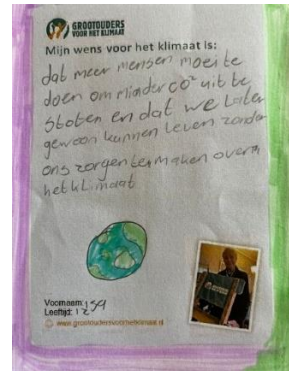 GROOTOUDERS
VOOR HET KLIMAAT
Mijn wens voor het klimaat is:
dat meer mensen moeite
doen om minder CO² uit te
stoten en dat we later
gewoon kunnen leven zonder
ons zorgen te maken over
het klimaat
Voornaam:
Leeftijd: 12
www.grootoudersvoorhetklimaat.nl